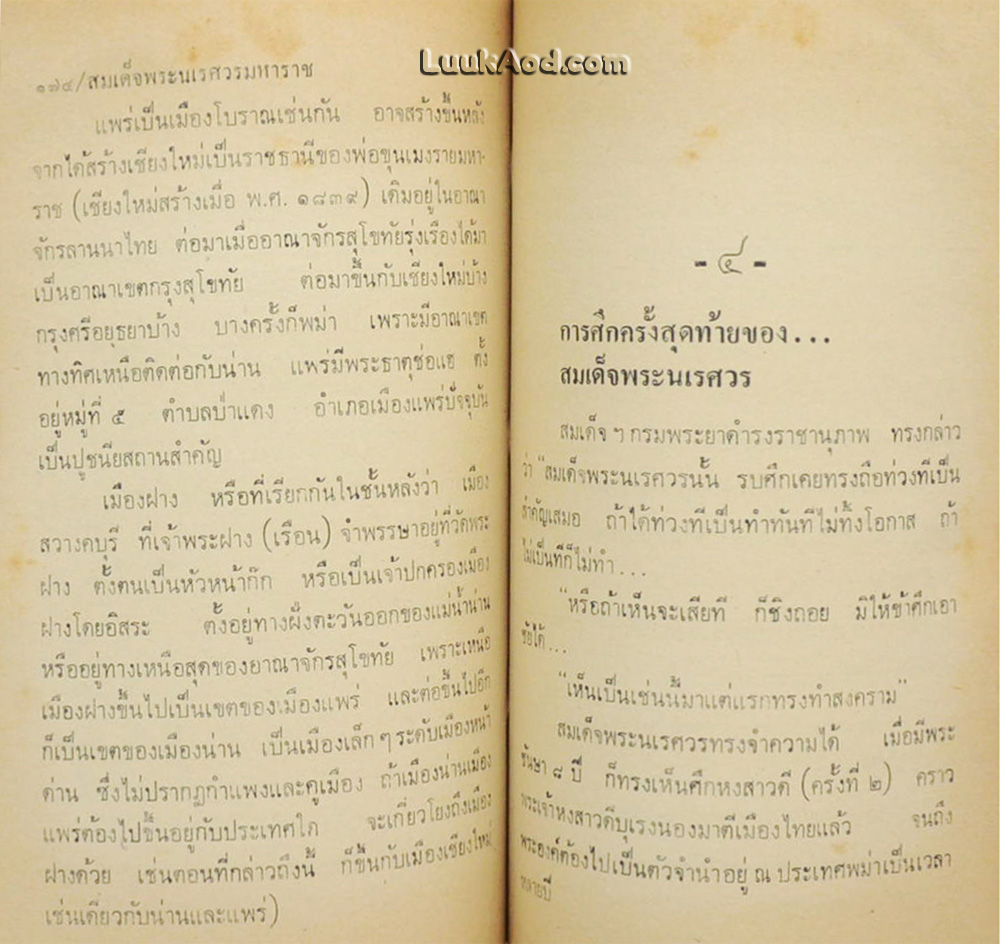 LuukAod.com
๑๗๔/สมเด็จพระนเรศวรมหาราช
แพร่เป็นเมืองโบราณเช่นกัน อาจสร้างขึ้นหลัง
จากได้สร้างเชียงใหม่เป็นราชธานีของพ่อขุนเมงรายมหา-
ราช (เชียงใหม่สร้างเมื่อ พ.ศ. ๑๘๓๙) เดิมอยู่ในอาณา
จักรลานนาไทย ต่อมาเมื่ออาณาจักรสุโขทัยรุ่งเรืองได้มา
เป็นอาณาเขตกรุงสุโขทัย ต่อมาขึ้นกับเชียงใหม่บ้าง
กรุงศรีอยุธยาบ้าง บางครั้งก็พม่า เพราะมีอาณาเขต
ทางทิศเหนือติดต่อกับน่าน แพร่มีพระธาตุช่อแฮ ตั้ง
อยู่หมู่ที่ ๕ ตำบลป่าแดง อำเภอเมืองแพร่ปัจจุบัน
เป็นปูชนียสถานสำคัญ
เมืองฝาง หรือที่เรียกกันในชั้นหลังว่า เมือง
สวางคบุรี ที่เจ้าพระฝาง (เรือน) จำพรรษาอยู่ที่วัดพระ
ฝาง ตั้งตนเป็นหัวหน้าก๊ก หรือเป็นเจ้าปกครองเมือง
ฝางโดยอิสระ ตั้งอยู่ทางฝั่งตะวันออกของแม่น้ำน่าน
หรืออยู่ทางเหนือสุดของอาณาจักรสุโขทัย เพราะเหนือ
เมืองฝางขึ้นไปเป็นเขตของเมืองแพร่ และต่อขึ้นไปอีก
ก็เป็นเขตของเมืองน่าน เป็นเมืองเล็กๆ ระดับเมืองหน้า
ด่าน ซึ่งไม่ปรากฏกำแพงและคูเมือง ถ้าเมืองน่านเมือง
แพร่ต้องไปขึ้นอยู่กับประเทศใด จะเกี่ยวโยงถึงเมือง
ฝางด้วย เช่นตอนที่กล่าวถึงนี้ ก็ขึ้นกับเมืองเชียงใหม่
เช่นเดียวกับน่านและแพร่)
- ๔ -
การศึกครั้งสุดท้ายของ...
สมเด็จพระนเรศวร
สมเด็จ ฯ กรมพระยาดำรงราชานุภาพ ทรงกล่าว
ว่า "สมเด็จพระนเรศวรนั้น รบศึกเคยทรงถือท่วงทีเป็น
สำคัญเสมอ ถ้าได้ท่วงทีเป็นทำทันทีไม่ทิ้งโอกาส ถ้า
ไม่เป็นทีก็ไม่ทำ...
"หรือถ้าเห็นจะเสียที ก็ชิงถอย มิให้ข้าศึกเอา
ชัยได้...
"เห็นเป็นเช่นนี้มาแต่แรกทรงทำสงคราม"
สมเด็จพระนเรศวรทรงจำความได้ เมื่อมีพระ
ชันษา ๘ ปี ก็ทรงเห็นศึกหงสาวดี (ครั้งที่ ๒) คราว
พระเจ้าหงสาวดีบุเรงนองมาตีเมืองไทยแล้ว จนถึง
พระองค์ต้องไปเป็นตัวจำนำอยู่ ณ ประเทศพม่าเป็นเวลา
หลายปี